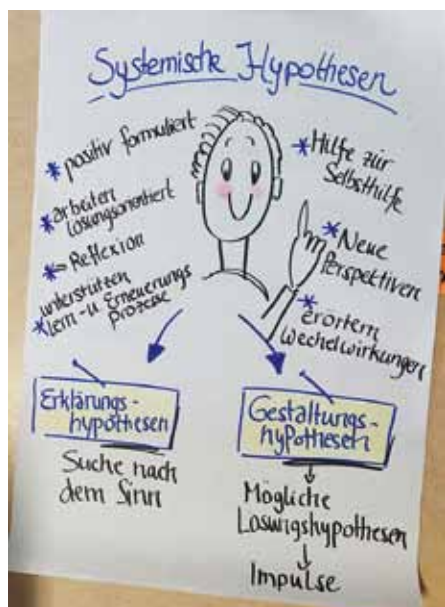 Systemische Hypothesen
* positiv formuliert
* arbeiten
lösungsorientiert
* = Reflexion
unterstützen
* lern-u. Erneuerungs
prozesse
* Hilfe zur
Selbsthilfe
* Neue
Perspektiven
* erörtern
Wechelwirkungen
Erklärungs-
hypothesen
Suche nach
dem Sinn
Gestaltungs-
hypothesen
Mögliche
Lösungshypothesen
Impulse